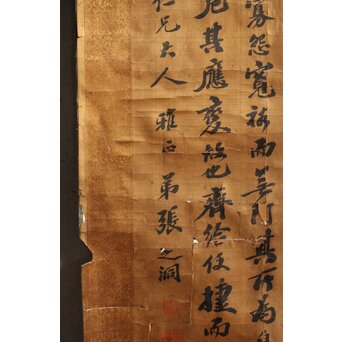 寡怨寬裕而無阿其所為身
危其應變故也齊給便捷而
仁兄大人 雅正 弟張之洞